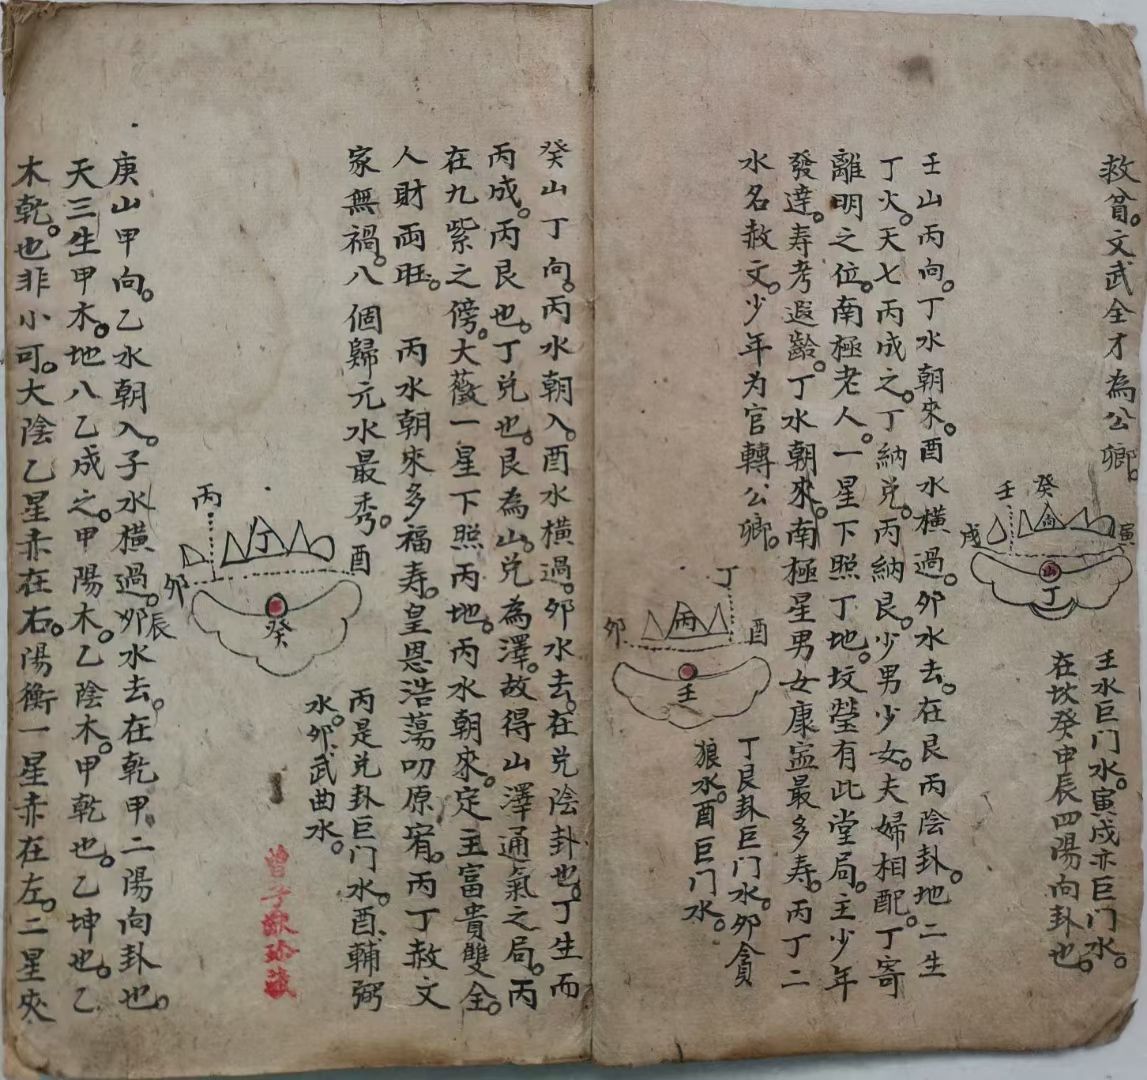 救貧。文武全才為公卿。
壬
癸
戌
向
寅
山
丁
壬水巨门水。寅戌亦巨门水。
在坎癸申辰四陽向卦也。
壬山丙向。丁水朝來。酉水橫過。夘水去。在艮丙陰卦。地二生
丁火。天七丙成之。丁納兑。丙納艮。少男少女。夫婦相配。丁寄
離明之位。南極老人。一星下照丁地。坟瑩有此堂局。主少年
發達。寿考遐齡。丁水朝來。南極星男女康寍最多寿。丙丁二
水名赦文。少年为官轉公卿。
丁
夘
丙
酉
壬
丁艮卦巨门水。夘貪
狼水。酉巨门水。
癸山丁向。丙水朝入。酉水橫過。夘水去。在兑陰卦也。丁生而
丙成。丙艮也。丁兑也。艮為山。兑為澤。故得山澤通氣之局。丙
在九紫之傍。大薇一星下照丙地。丙水朝來。定主富貴雙全。
人財両旺。丙水朝來多福寿。皇恩浩蕩叨原宥。丙丁赦文
家無禍。八個歸元水最秀。
丙
丁
夘
酉
癸
丙是兑卦巨门水。酉輔弼
水。夘武曲水。
曾子猷珍藏
庚山甲向。乙水朝入。子水橫過。夘辰水去。在乾甲二陽向卦也。
天三生甲木。地八乙成之。甲陽木。乙陰木。甲乾也。乙坤也。乙
木乾。也非小可。大陰乙星赤在右。陽衡一星赤在左。二星夾